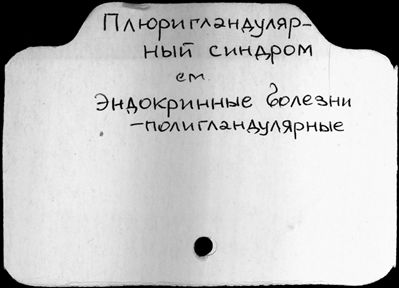 Плюригландуляр-
ный синдром
см.
Эндокринные болезни
-полигландулярные